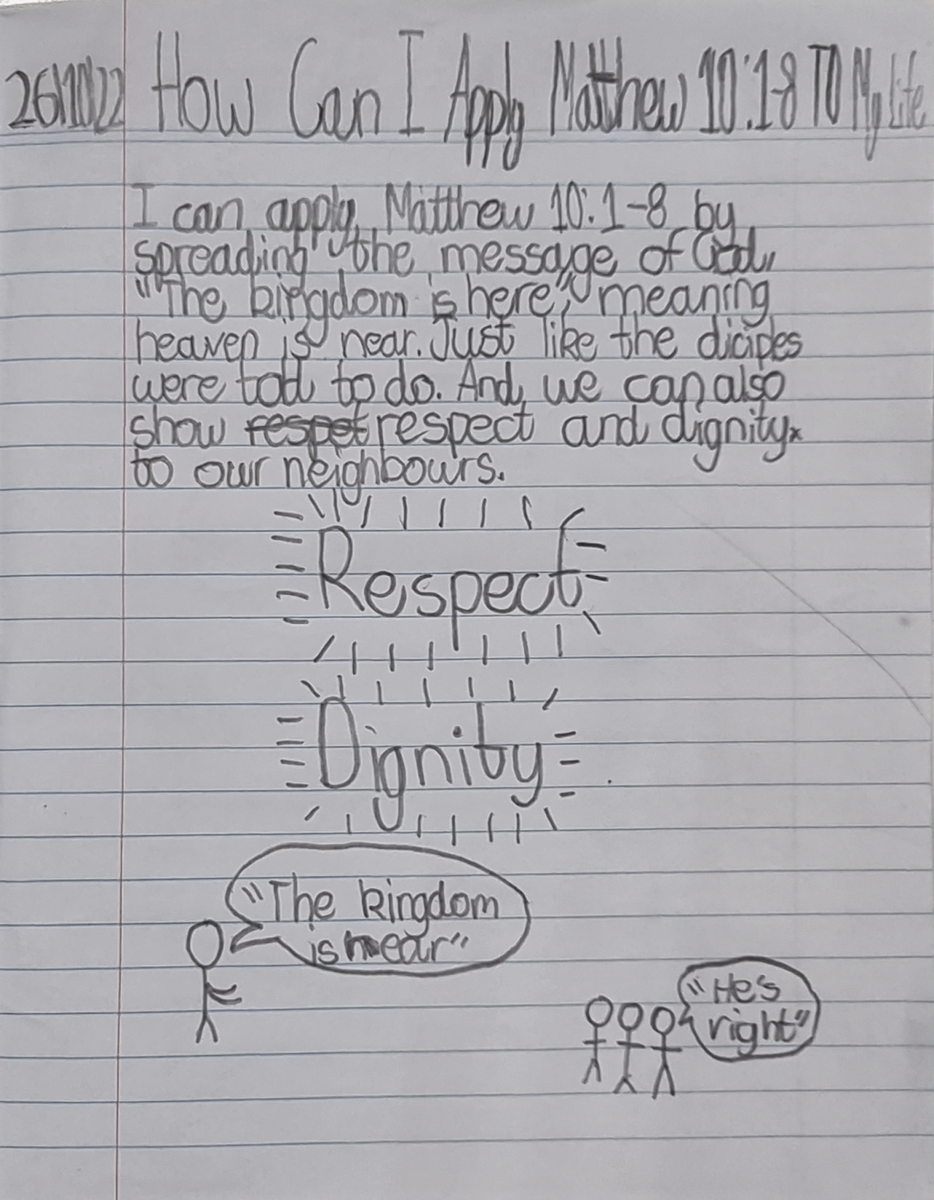 26/10/22 How Can I Apply Matthew 10:1-8 To My Life
I can apply Matthew 10:1-8 by
spreading the message of God,
"The kingdom is here", meaning
heaven is near. Just like the dicipes
were told to do. And, we can also
show respet respect and dignity
to our neighbours.
Respect
Dignity
"The kingdom
is near"
"He's
right"